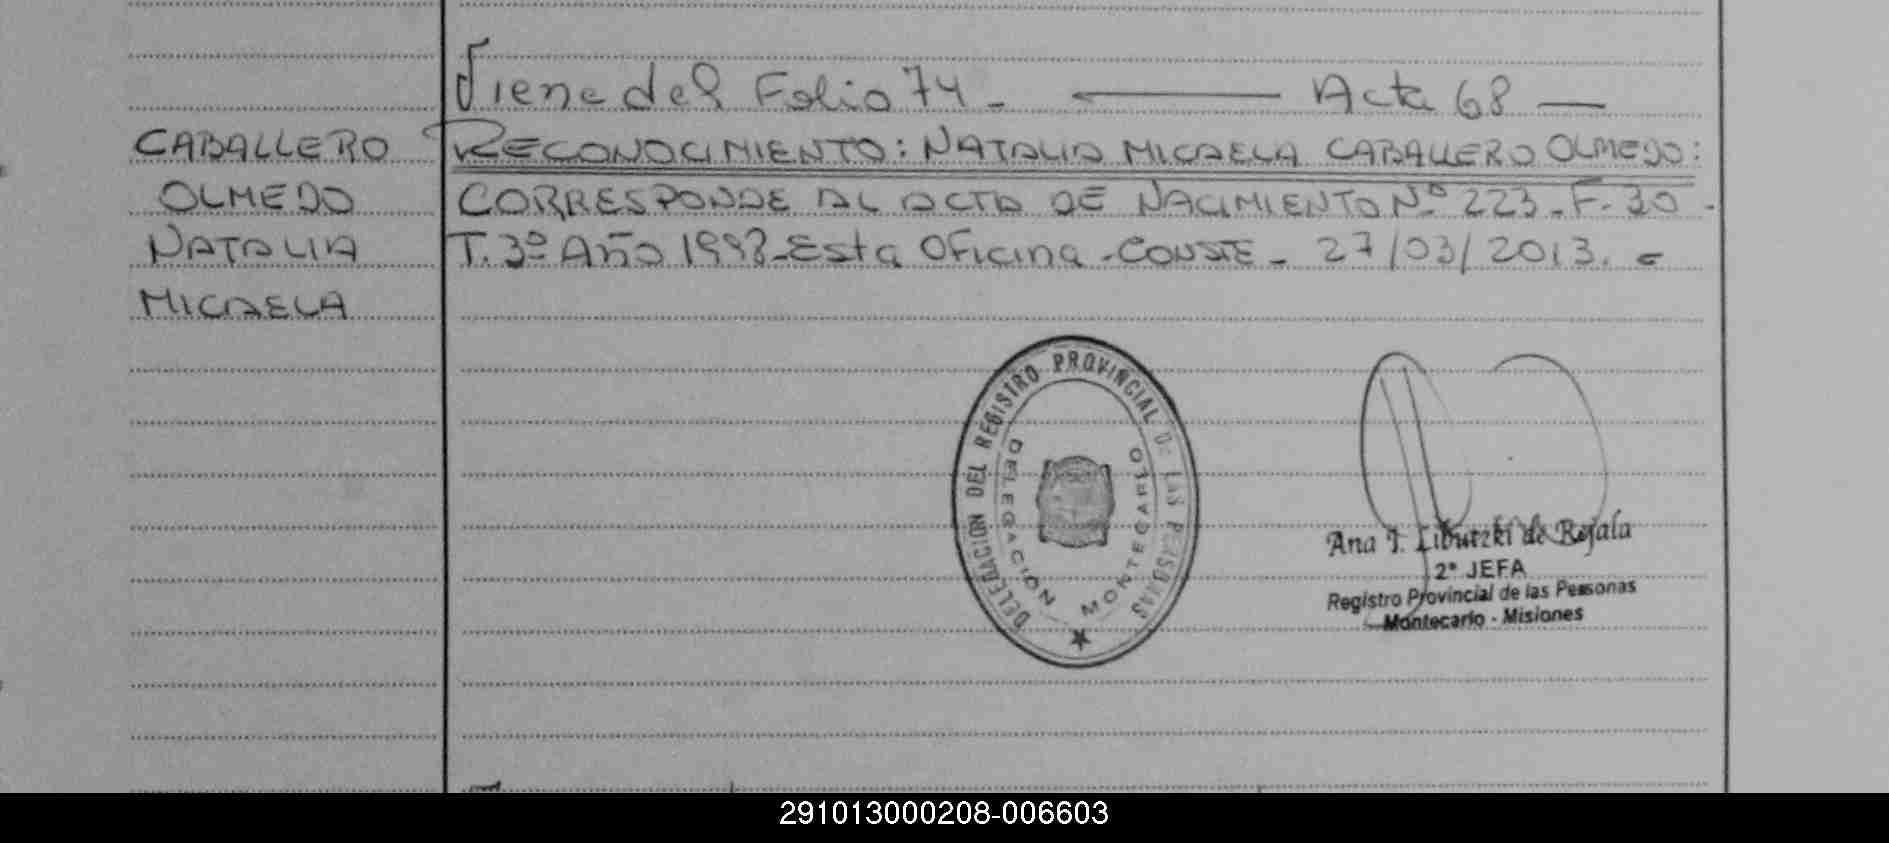 Viene del Folio 74 - ——— Acta 68 —
CABALLERO
OLMEDO
NATALIA
MICAELA
RECONOCIMIENTO: NATALIA MICAELA CABALLERO OLMEDO:
CORRESPONDE AL ACTA DE NACIMIENTO Nº 223. F. 30.
T. 3º Año 1998-Esta Oficina - CONSTE - 27/03/2013. -
DELEGACIÓN DEL REGISTRO PROVINCIAL DE LAS PERSONAS
DELEGACIÓN MONTECARLO
Ana T. Libutzki de Rojala
2ª JEFA
Registro Provincial de las Personas
Montecarlo - Misiones
291013000208-006603